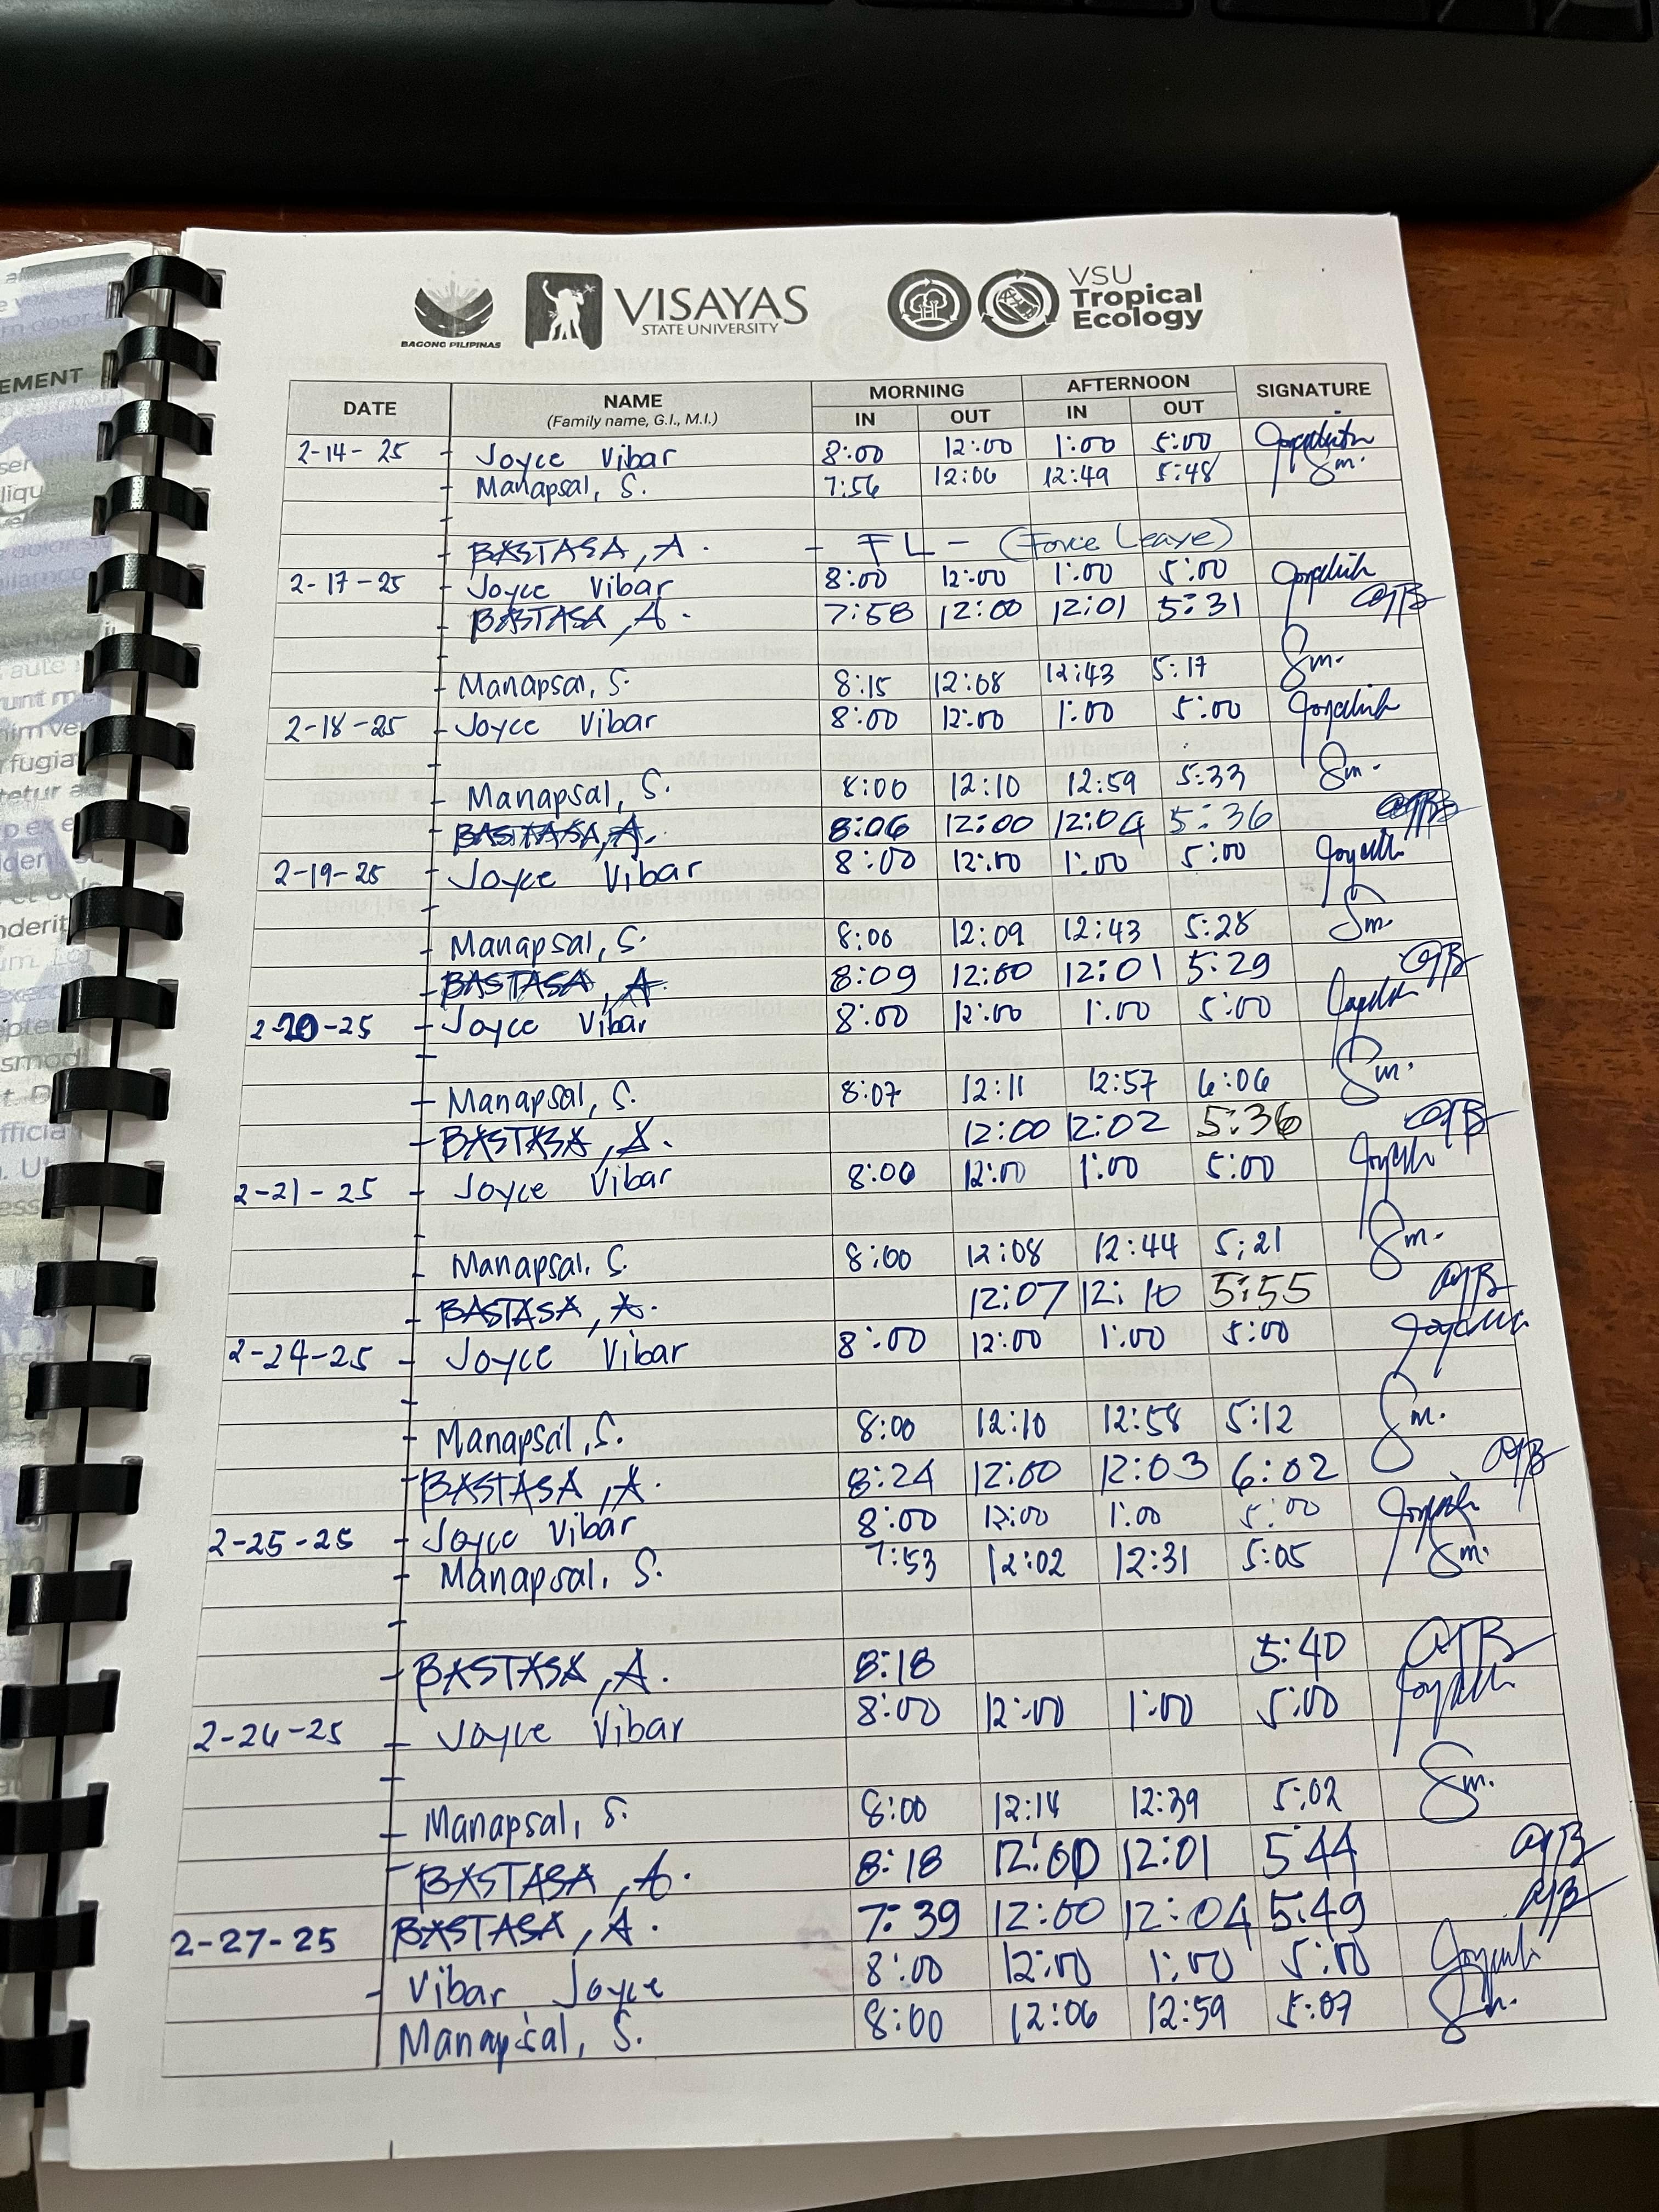 EMENT
BAGONG PILIPINAS
VISAYAS
STATE UNIVERSITY
VSU
Tropical
Ecology
DATE NAME MORNING AFTERNOON SIGNATURE
(Family name, G.I., M.I.) IN OUT IN OUT
2-14-25 - Joyce Vibar 8:00 12:00 1:00 5:00
- Manapsal, S. 7:56 12:06 12:49 5:48 Sm.
-
- BASTASA, A. - FL - (Force Leave)
2-17-25 - Joyce Vibar 8:00 12:00 1:00 5:00
- BASTASA, A. 7:58 12:00 12:01 5:31
-
- Manapsal, S. 8:15 12:08 12:43 5:17 Sm.
2-18-25 - Joyce Vibar 8:00 12:00 1:00 5:00
-
- Manapsal, S. 8:00 12:10 12:59 5:33 Sm.
- BASTASA, A. 8:06 12:00 12:04 5:36
2-19-25 - Joyce Vibar 8:00 12:00 1:00 5:00
-
- Manapsal, S. 8:00 12:09 12:43 5:28 Sm.
- BASTASA, A. 8:09 12:00 12:01 5:29
2-20-25 - Joyce Vibar 8:00 12:00 1:00 5:00
-
- Manapsal, S. 8:07 12:11 12:57 6:06 Sm.
- BASTASA, A. 12:00 12:02 5:36
2-21-25 - Joyce Vibar 8:00 12:00 1:00 5:00
- Manapsal, S. 8:00 12:08 12:44 5:21 Sm.
- BASTASA, A. 12:07 12:10 5:55
2-24-25 - Joyce Vibar 8:00 12:00 1:00 5:00
-
- Manapsal, S. 8:00 12:10 12:58 5:12 Sm.
- BASTASA, A. 8:24 12:00 12:03 6:02
2-25-25 - Joyce Vibar 8:00 12:00 1:00 5:00
- Manapsal, S. 7:53 12:02 12:31 5:05 Sm.
-
- BASTASA, A. 8:18 5:40
2-26-25 - Joyce Vibar 8:00 12:00 1:00 5:00
-
- Manapsal, S. 8:00 12:14 12:39 5:02 Sm.
- BASTASA, A. 8:18 12:00 12:01 5:44
2-27-25 BASTASA, A. 7:39 12:00 12:04 5:49
- Vibar Joyce 8:00 12:00 1:00 5:00
Manapsal, S. 8:00 12:06 12:59 5:07